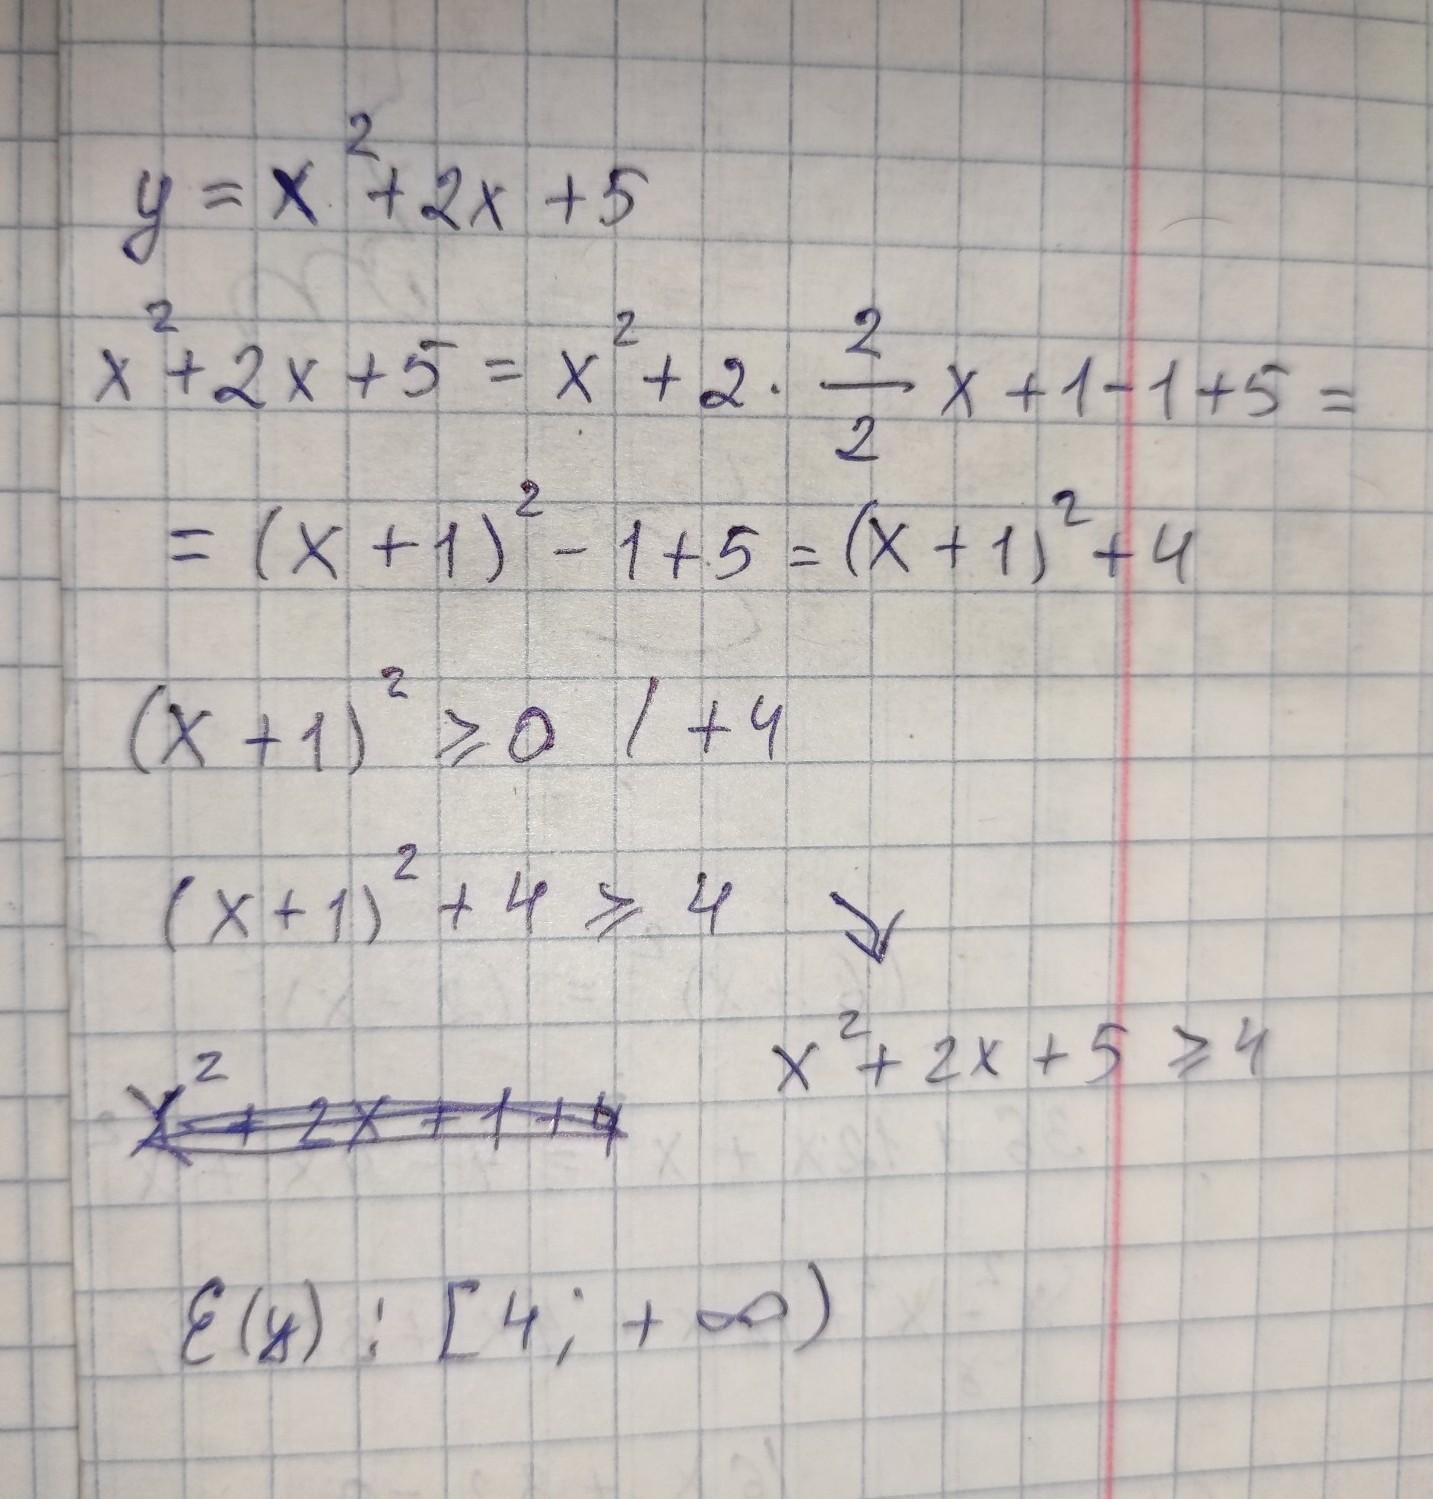 y = x² + 2x + 5
x² + 2x + 5 = x² + 2 · 2/2 x + 1 - 1 + 5 =
= (x + 1)² - 1 + 5 = (x + 1)² + 4
(x + 1)² ⩾ 0 / + 4
(x + 1)² + 4 ⩾ 4 ↘
x² + 2x + 5 ⩾ 4
x² + 2x + 1 + 4
E(y) : [4; + ∞)